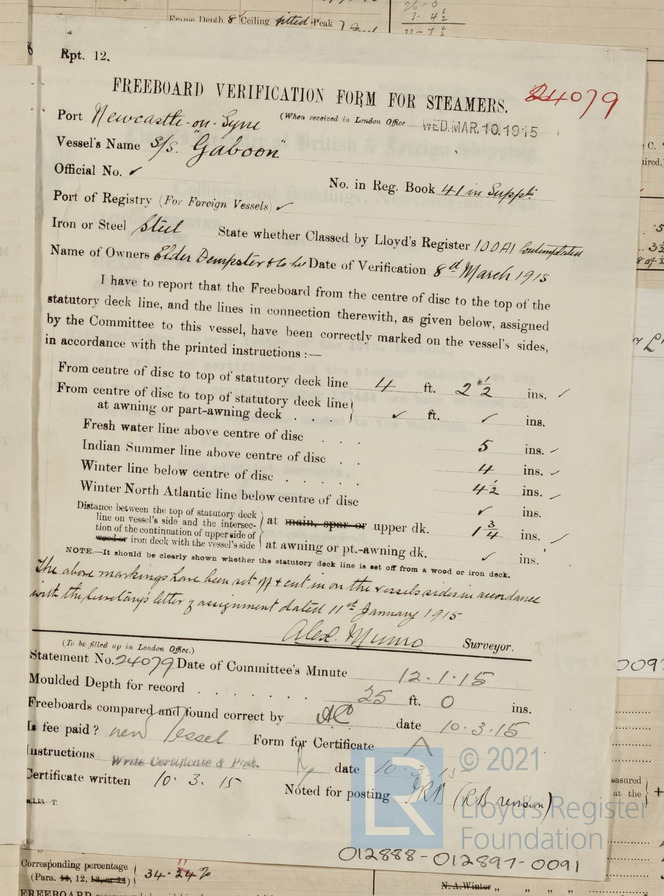 Frame Depth 8 Ceiling fitted Peak
Rpt. 12.
24079
FREEBOARD VERIFICATION FORM FOR STEAMERS.
Port Newcastle-on-Tyne (When received in London Office WED. MAR. 10. 1915
Vessel's Name S/S. "Gaboon"
Official No. ✓ No. in Reg. Book 41 in Suppt.
Port of Registry (For Foreign Vessels) ✓
Iron or Steel Steel State whether Classed by Lloyd's Register 100A1 Contemplated
Name of Owners Elder Dempster & Co Ld Date of Verification 8th March 1915
I have to report that the Freeboard from the centre of disc to the top of the
statutory deck line, and the lines in connection therewith, as given below, assigned
by the Committee to this vessel, have been correctly marked on the vessel's sides,
in accordance with the printed instructions :—
From centre of disc to top of statutory deck line 4 ft. 2 ½ ins. ✓
From centre of disc to top of statutory deck line
at awning or part-awning deck . . . ✓ ft. ✓ ins.
Fresh water line above centre of disc . . . 5 ins. ✓
Indian Summer line above centre of disc . . 4 ins. ✓
Winter line below centre of disc . . . . 4½ ins. ✓
Winter North Atlantic line below centre of disc ✓ ins.
Distance between the top of statutory deck
line on vessel's side and the intersec-
tion of the continuation of upper side of
wood or iron deck with the vessel's side
at main, spar or upper dk. 1 ¾ ins. ✓
at awning or pt.-awning dk. ✓ ins.
NOTE.—It should be clearly shown whether the statutory deck line is set off from a wood or iron deck.
The above markings have been set off & cut in on the vessels sides in accordance
with the Secretary's letter of assignment dated 11th January 1915
Alex. Munro Surveyor.
(To be filled up in London Office.)
Statement No. 24079 Date of Committee's Minute 12.1.15
Moulded Depth for record . . . . . . . 25 ft. 0 ins.
Freeboards compared and found correct by date 10.3.15
Is fee paid? new Vessel Form for Certificate A
Instructions Write Certificate & Post. date 10.3.15
Certificate written 10.3.15 Noted for posting RB (RB revision)
© 2021
Lloyd's Register
Foundation
LR
012888-012897-0091
Corresponding percentage
(Para. 11, 12, 
34.
N. A. Winter